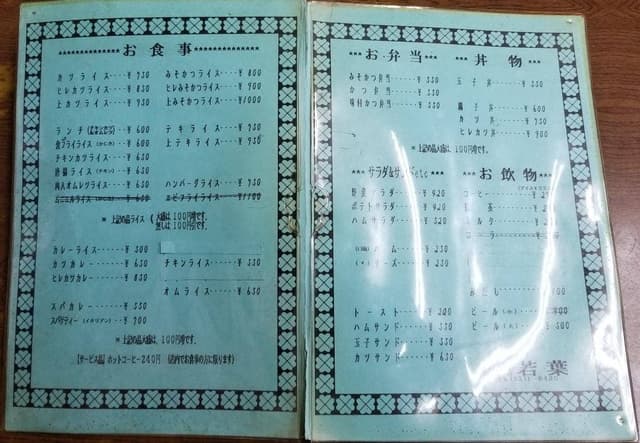 お食事
カツライス・・・¥750
みそかつライス・・・¥800
ヒレカツライス・・・¥850
ヒレみそかつライス・・・¥900
上カツライス・・・¥950
上みそかつライス・・・¥1000
ランチ ¥600
テキライス・・・¥750
¥600
上テキライス・・・¥950
チキンカツライス・・・¥650
¥650
肉入オムレツライス・・・¥650
ハンバーグライス・・・¥750
※上記の品ライス(大盛は100円増です。
無しは100円安です。
カレーライス・・・¥500
カツカレー・・・¥650
チキンライス・・・¥550
ヒレカツカレー・・・¥850
オムライス・・・¥650
スパカレー・・・¥550
スパゲティー(イタリアン)・・・¥700
※上記の品大盛は、100円増です。
【サービス品】ホットコーヒー240円(店内でお食事の方に限ります)
お弁当
みそかつ弁当・・・¥550
かつ弁当・・・¥550
味付かつ弁当・・・¥550
丼物
玉子丼・・・¥550
親子丼・・・¥600
カツ丼・・・¥750
ヒレカツ丼・・・¥900
※上記の品大盛は、100円増です。
サラダ&サンドetc
野菜サラダ・・・¥420
ポテトサラダ・・・¥420
ハムサラダ・・・¥520
トースト・・・¥200
ハムサンド・・・¥550
玉子サンド・・・¥550
カツサンド・・・¥650
お飲物
コーヒー
ミルク
ビール(小)
ビール(大)
若葉